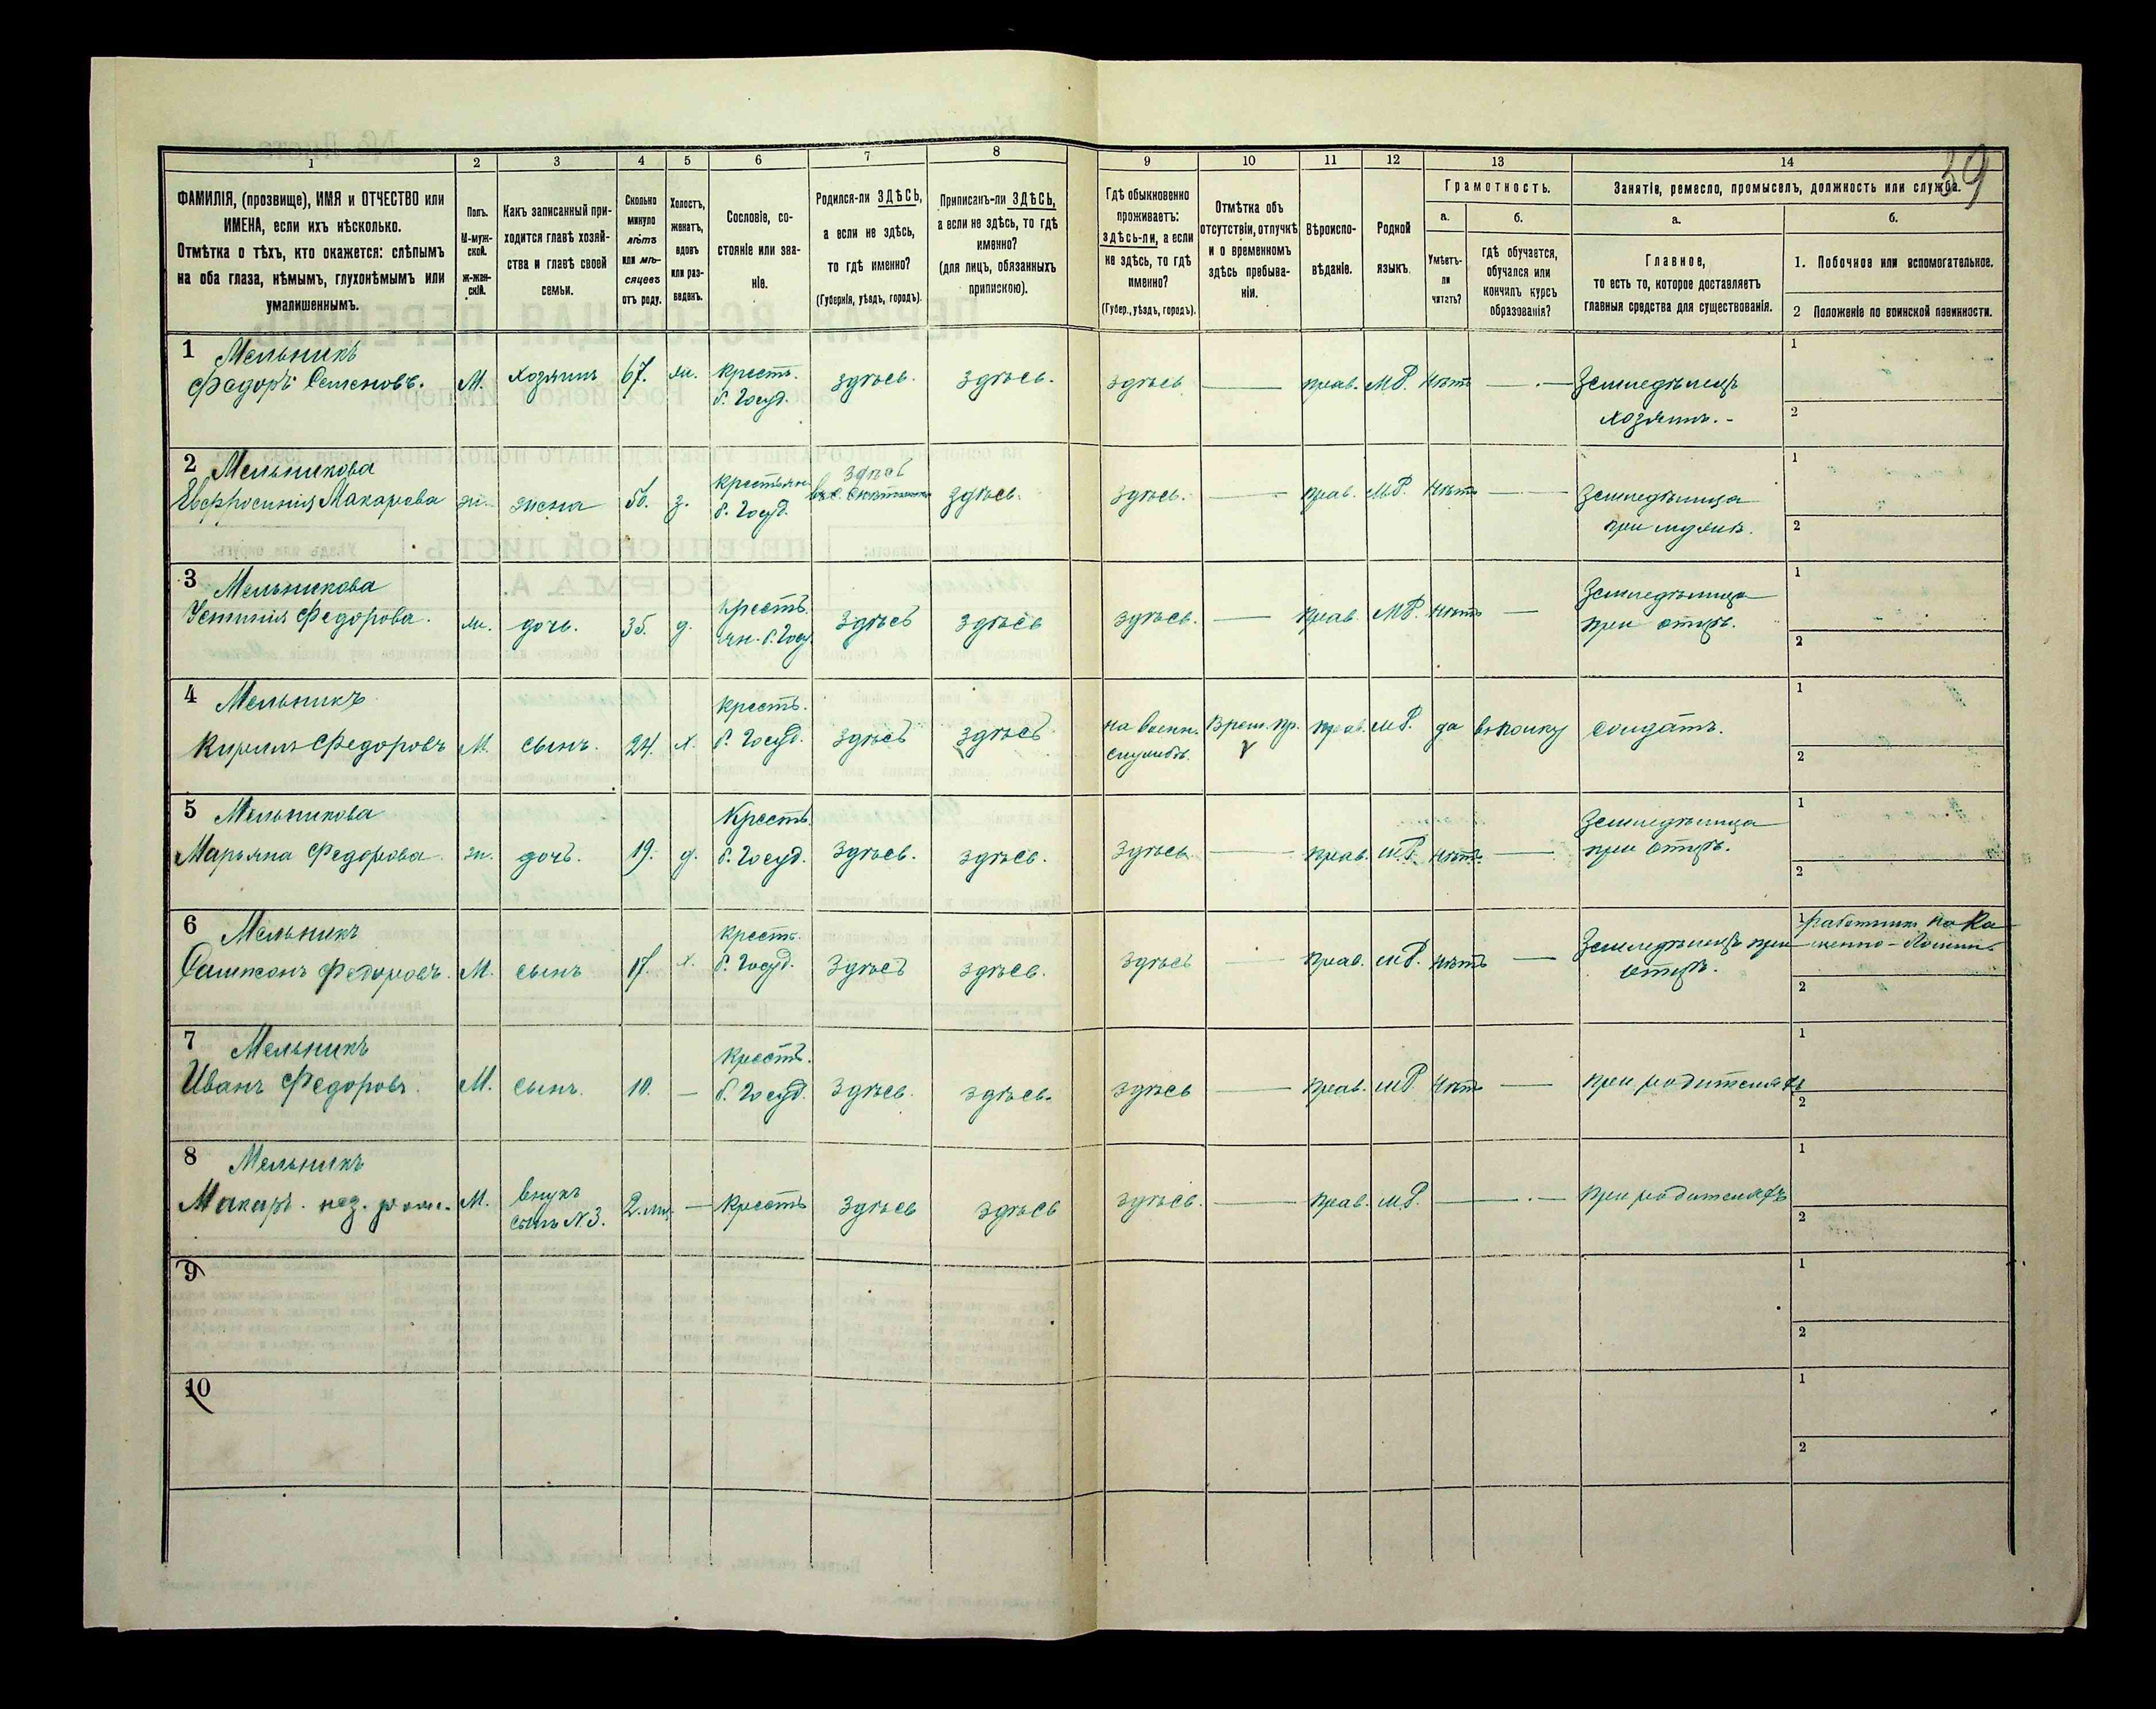 39
1 2 3 4 5 6 7 8 9 10 11 12 13 14
ФАМИЛІЯ, (прозвище), ИМЯ и ОТЧЕСТВО или
ИМЕНА, если ихъ нѣсколько.
Отмѣтка о тѣхъ, кто окажется: слѣпымъ
на оба глаза, нѣмымъ, глухонѣмымъ или
умалишеннымъ.
Полъ.
М-муж-
ской.
ж-жен-
скій.
Какъ записанный при-
ходится главѣ хозяй-
ства и главѣ своей
семьи.
Сколько
минуло
лѣтъ
или мѣ-
сяцевъ
отъ роду.
Холостъ,
женатъ,
вдовъ
или раз-
веденъ.
Сословіе, со-
стояніе или зва-
ніе.
Родился-ли ЗДѢСЬ,
а если не здѣсь,
то гдѣ именно?
(Губернія, уѣздъ, городъ).
Приписанъ-ли ЗДѢСЬ,
а если не здѣсь, то гдѣ
именно?
(для лицъ, обязанныхъ
припискою).
Гдѣ обыкновенно
проживаетъ:
здѣсь-ли, а если
не здѣсь, то гдѣ
именно?
(Губер., уѣздъ, городъ).
Отмѣтка объ
отсутствіи, отлучкѣ
и о временномъ
здѣсь пребыва-
ніи.
Вѣроиспо-
вѣданіе.
Родной
языкъ.
Грамотность.
а.
Умѣетъ-
ли
читать?
б.
гдѣ обучается,
обучался или
кончилъ курсъ
образованія?
Занятіе, ремесло, промыселъ, должность или служба.
а.
Главное,
то есть то, которое доставляетъ
главныя средства для существованія.
б.
1. Побочное или вспомогательное.
2 Положеніе по воинской повинности.
1 Мельникъ
Федоръ Семеновъ. М. хозяинъ 67. жн. крест. б. Госуд. здѣсь. здѣсь. здѣсь прав. МР. нѣтъ Земледѣлецъ
хозяинъ.
1
2
2 Мельникова
Евфросинія Макарова ж. жена 50. з. крестьян. б. Госуд. Здѣсь здѣсь. здѣсь. прав. МР. нѣтъ Земледѣлица
при мужѣ.
1
2
3 Мельникова
Устинія Федорова. ж. дочь. 35. д. крест.
ян. б. Госуд. Здѣсь здѣсь здѣсь. прав. МР. нѣтъ Земледѣлица
при отцѣ.
1
2
4 Мельникъ
Кирилъ Федоровъ М. сынъ. 24. х. крест. б. Госуд. здѣсь здѣсь на воен.
службѣ. Врем. пр. прав. МР. да въ полку солдатъ.
1
2
5 Мельникова
Марьяна Федорова ж. дочь. 19. д. Крест. б. Госуд. Здѣсь. здѣсь. здѣсь прав. МР. нѣтъ. Земледѣлица
при отцѣ.
1
2
6 Мельникъ
Сампсонъ Федоровъ. М. сынъ 17. х. крест. б. Госуд. Здѣсь здѣсь. здѣсь прав. МР. нѣтъ Земледѣлецъ при
отцѣ.
1 работникъ на Ка-
менно-
2
7 Мельникъ
Иванъ Федоровъ. М. сынъ. 10. — крест. б. Госуд. здѣсь. здѣсь. здѣсь прав. МР. нѣтъ при родителяхъ
1
2
8 Мельникъ
Макаръ. нез. рож. М. внукъ
сынъ N3. 2. мц. — крест. здѣсь здѣсь здѣсь. прав. МР. при родителяхъ
1
2
9
1
2
10
1
2